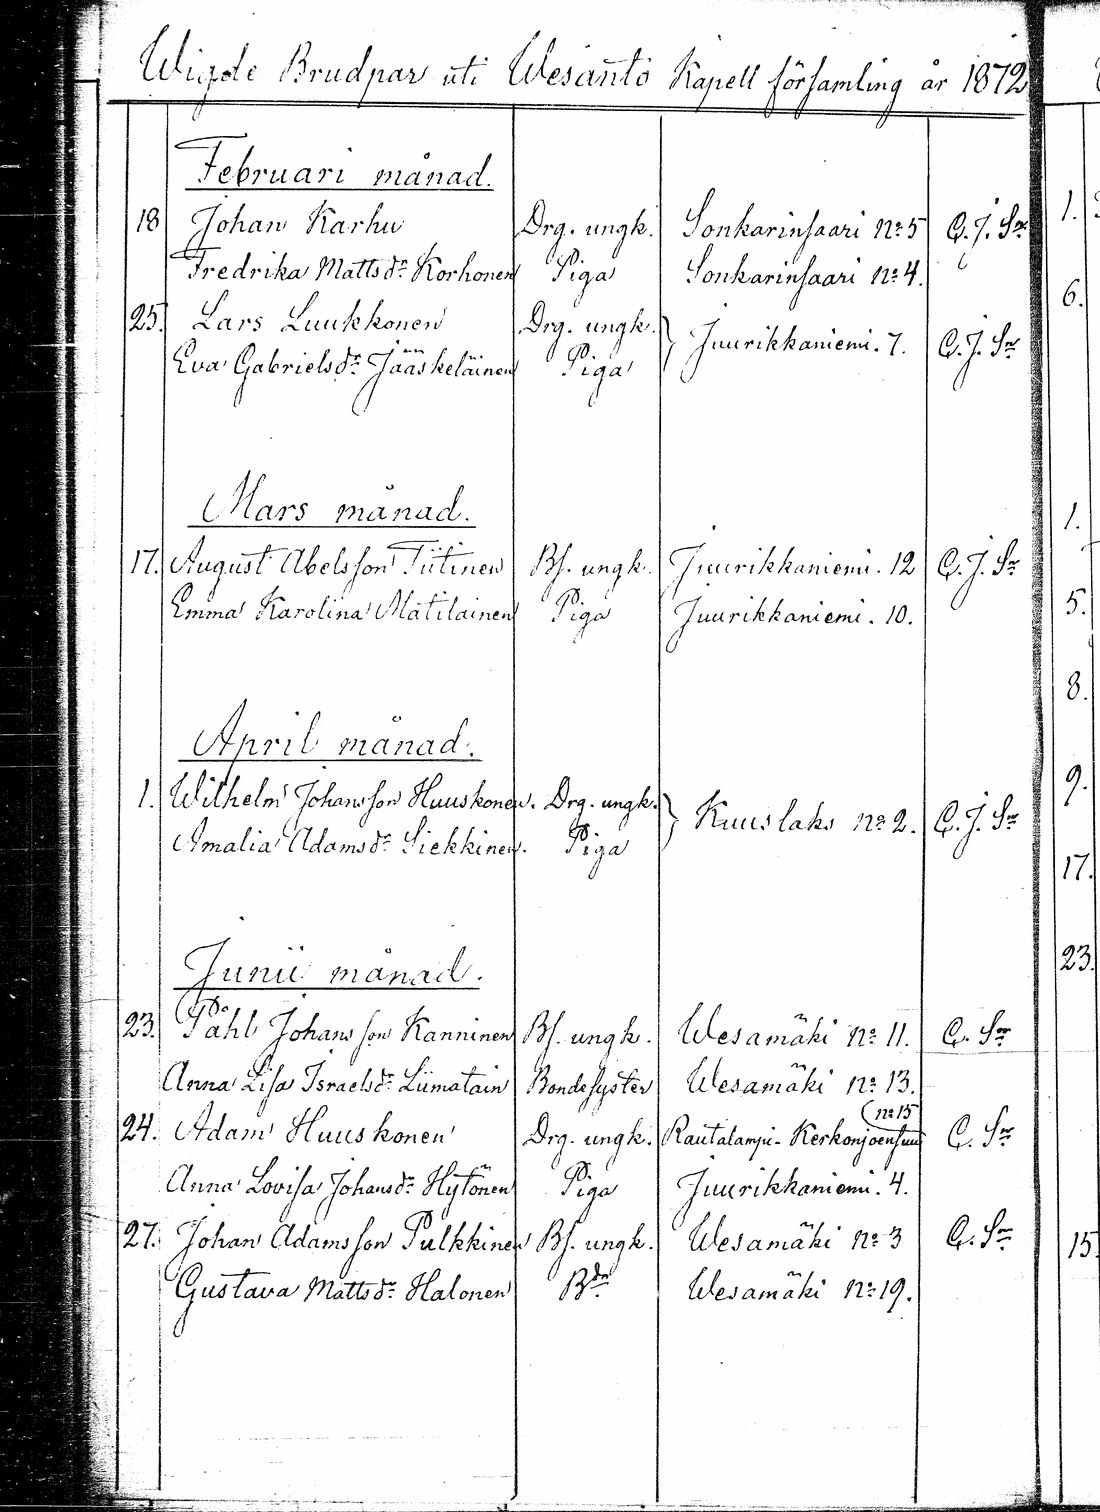 Wigde Brudpar uti Wesanto Kapell församling år 1872
Februari månad.
18 Johan Karhu Drg. ungk. Sonkarinsaari No 5 C. J. Sr
Fredrika Matts dr Korhonen Piga Sonkarinsaari No 4.
25. Lars Luukkonen Drg. ungk. } Juurikkaniemi. 7. C. J. Sr
Eva Gabrielsdr Jääskeläinen Piga
Mars månad.
17. August Abelsson Tiitinen Bs. ungk. Juurikkaniemi. 12 C. J. Sr
Emma Karolina Matilainen Piga Juurikkaniemi. 10.
April månad.
1. Wilhelm Johansson Huuskonen. Drg. ungk. } Kuuslaks No 2. C. J. Sr
Amalia Adamsdr Siekkinen. Piga
Junii månad.
23. Påhl Johansson Kanninen Bs. ungk. Wesamäki No 11. C. Sr
Anna Lisa Israelsdr Liimatain Bondesyster Wesamäki No 13.
(No 15
24. Adam Huuskonen Drg. ungk. Rautalampi - Kerkonjoensuu C. Sr
Anna Lovisa Johansdr Hytönen Piga Juurikkaniemi. 4.
27. Johan Adamsson Pulkkinen Bs. ungk. Wesamäki No 3 C. Sr
Gustava Mattsdr Halonen Bdr Wesamäki No 19.
1.
6.
1.
5.
8.
9.
17.
23.
15